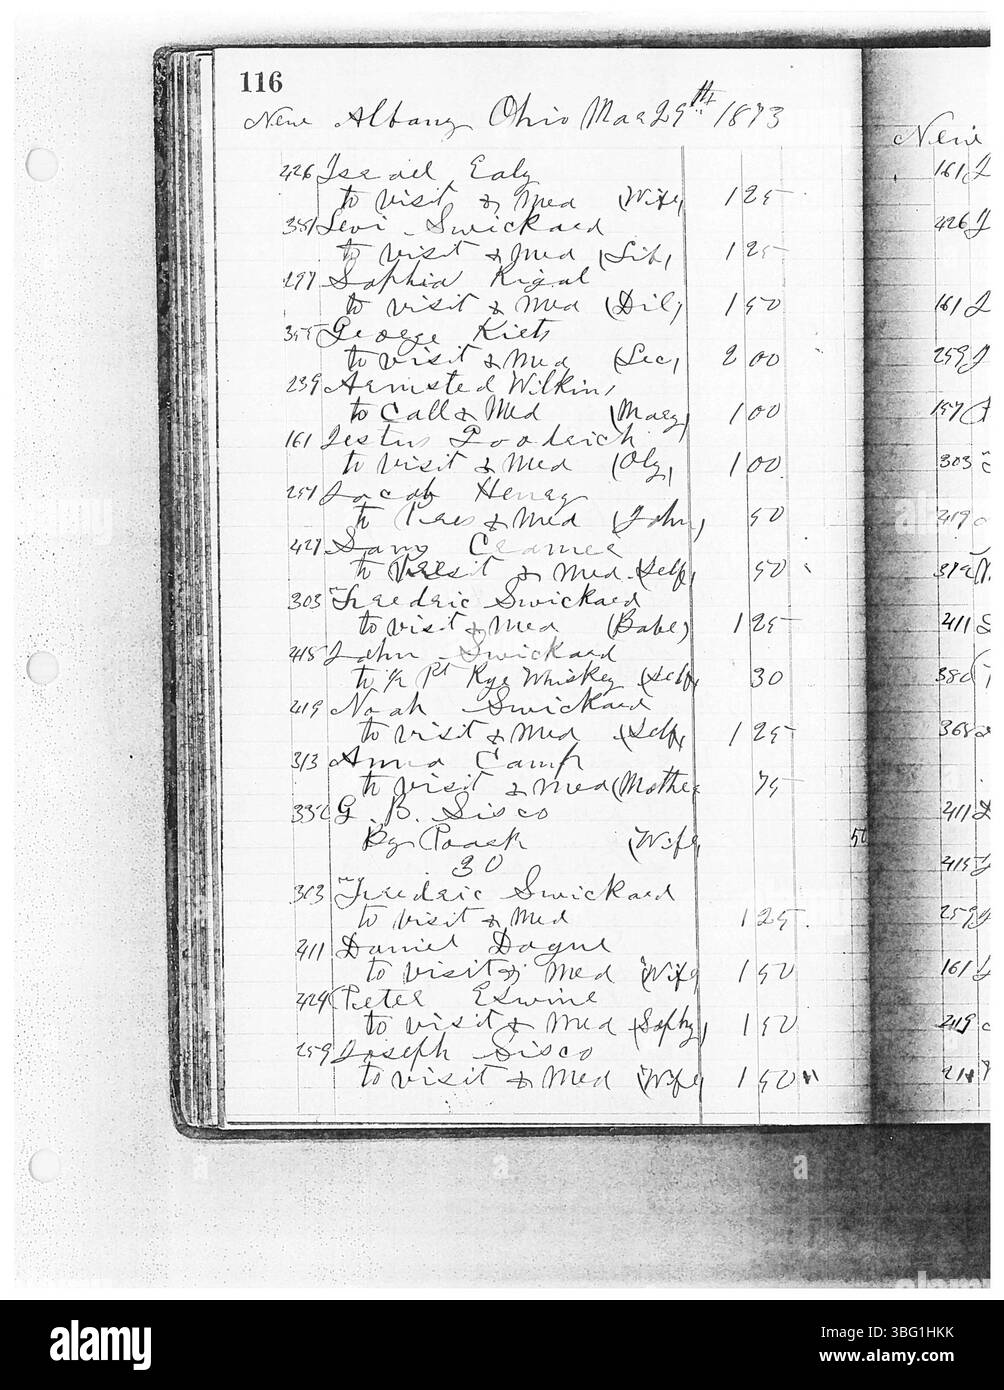 116
New Albany Ohio Mar 29th 1873
426 Israel Ealy
to visit & Med (Wife) 1 25
351 Levi Swickard
to visit & Med (Sib) 1 25
297 Sophia Rigal
to visit & Med (Dil) 1 50
355 George Kiets
to visit & Med (Sec) 2 00
239 Armsted Wilkins
to Call & Med (Mary) 1 00
161 Festus Goodrich
to visit & Med (Oly) 1 00
251 Jacob Henry
to Pres & Med (John) 50
427 Samy Cramer
to visit & Med (Self) 50
303 Fredric Swickard
to visit & Med (Babe) 1 25
415 John Swickard
to 1/2 Pt Rye Whiskey (Self) 30
419 Noah Swickard
to visit & Med (Self) 1 25
313 Anna Camp
to visit & Med (Mother 75
G. B. Sisco
By (Wife) 50
30
303 Fredric Swickard
to visit & Med 1 25
411 Daniel Dague
to visit & Med (Wife) 1 50
424 Peter Eswine
to visit & Med (Sophy) 1 50
259 Joseph Sisco
to visit & Med (Wife) 1 50
New
161
426
161
259
157
303
419
319
411
380
368
411
415
259
161
419
alamy
a
Image ID: 3BG1HKK
www.alamy.com